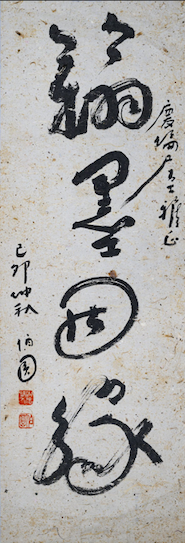 翰墨因緣
慶居士雅正
己卯仲秋 伯圓